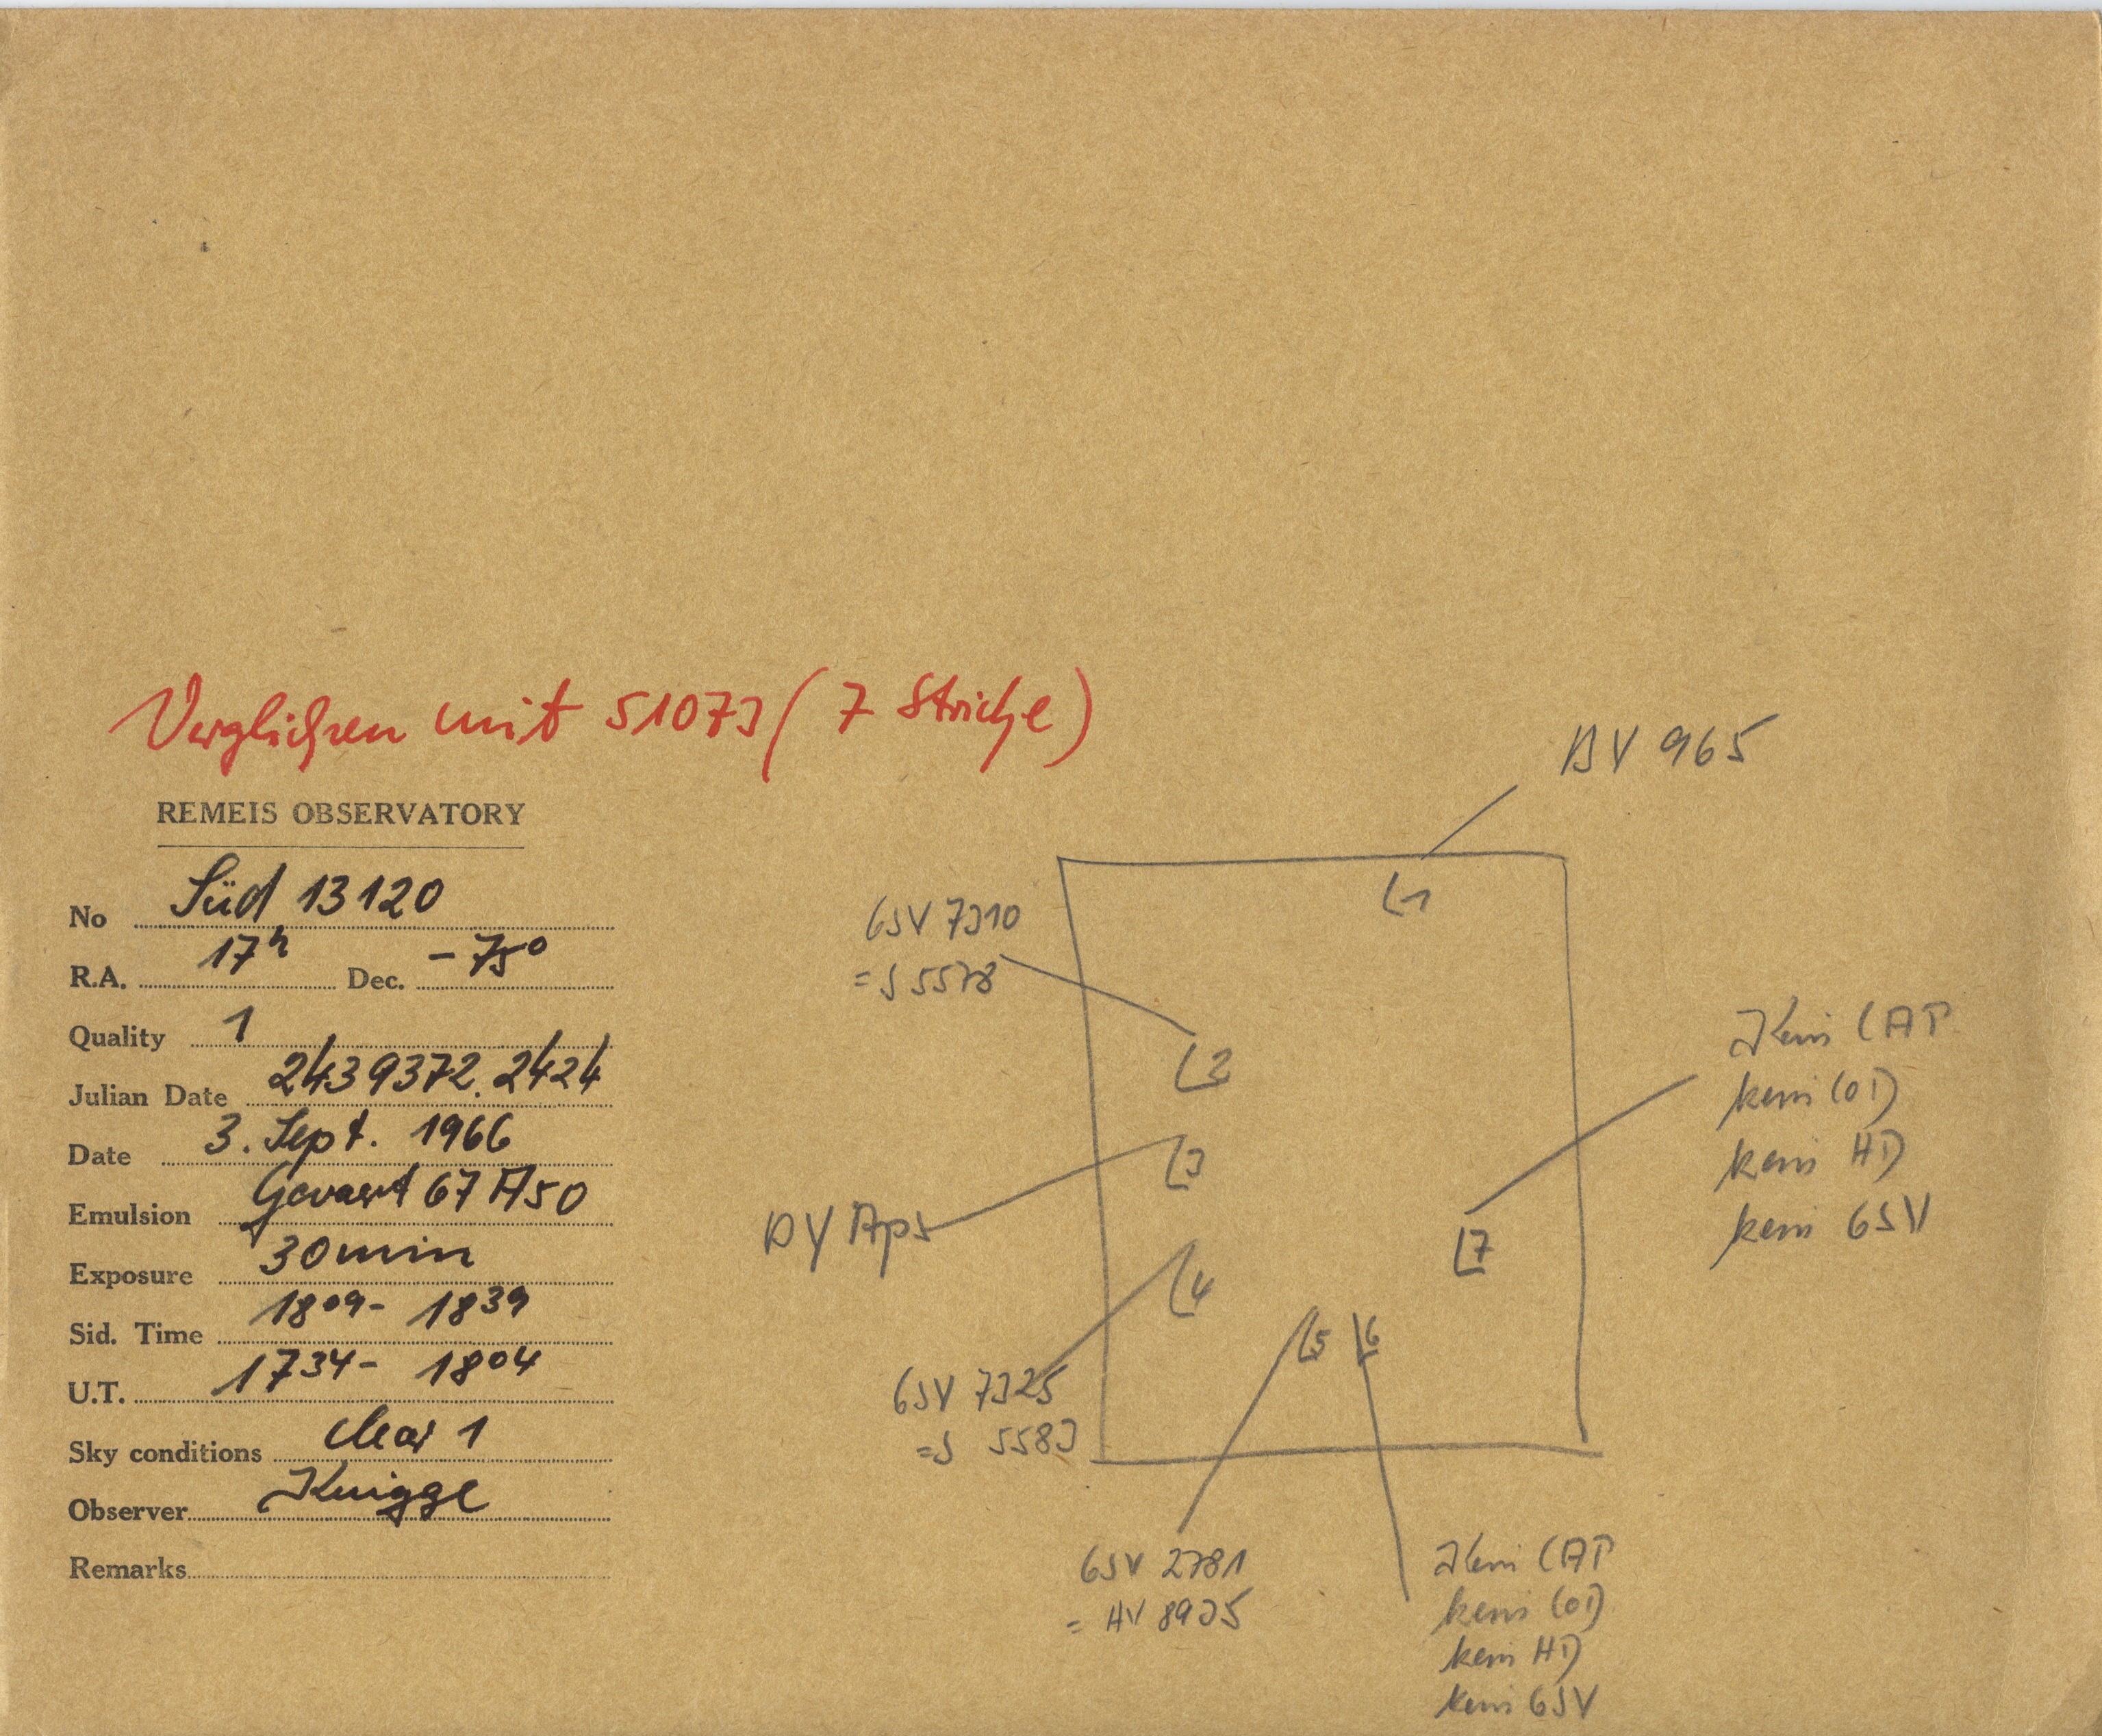 Verglichen mit S1073 (7 Striche)
REMEIS OBSERVATORY
No Süd 13120
R.A. 17h Dec. -75°
Quality 1
Julian Date 2439372.2424
Date 3. Sept. 1966
Emulsion Gevaert 67 A50
Exposure 30 min
Sid. Time 18 09 - 18 39
U.T. 17 34 - 18 04
Sky conditions clear 1
Observer Knigge
Remarks
BV 965
1
GSV 7310
= S 5578
2
3
DY Aps
4
GSV 7325
= S 5583
5
6
7
Kein CAP
kein COD
kein HD
kein GSV
GSV 2781
= HV 8935
Kein CAP
kein COD
kein HD
kein GSV